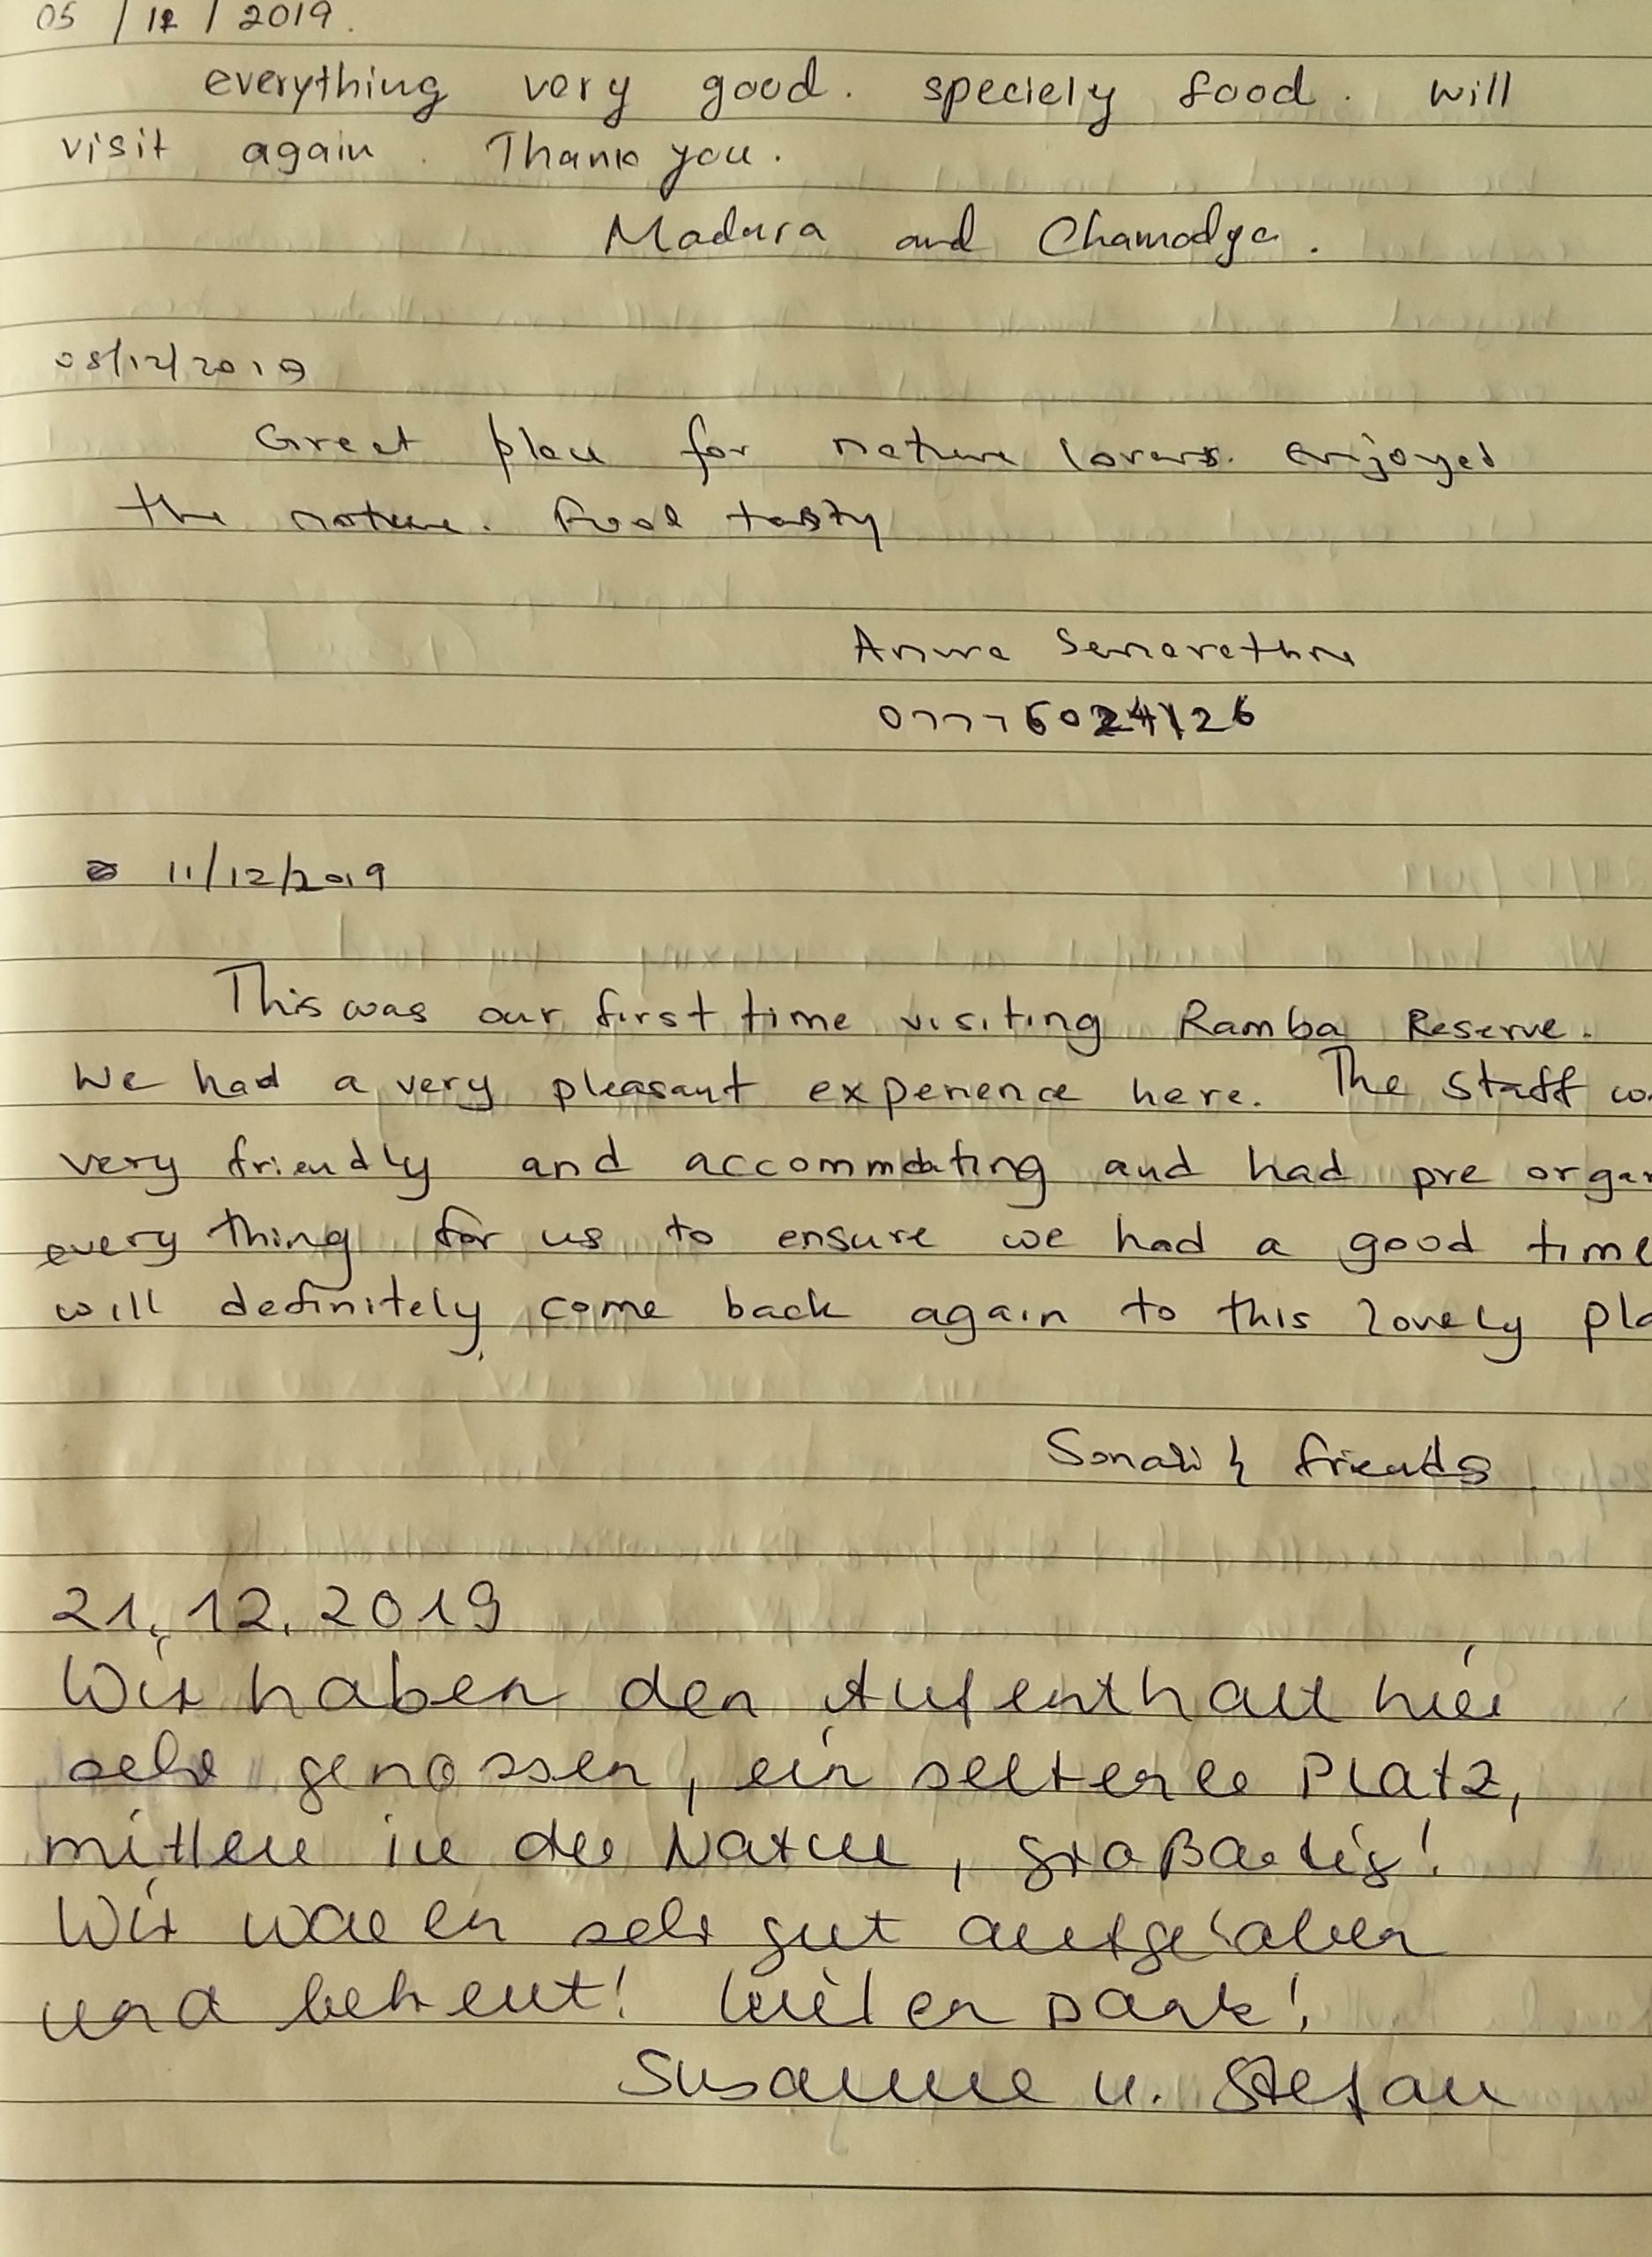 05/12/2019.
everything very good. speciely food. will
visit again. Thank you.
Madura and Chamodya.
08/12/2019
Great place for nature lovers. enjoyed
the nature. Food tasty
Anura Senarathne
0777602426
11/12/2019
This was our first time visiting Ramba Reserve.
We had a very pleasant experience here. The staff
very friendly and accommodating and had pre
every thing for us to ensure we had a good time
will definitely come back again to this lovely
Sonali & friends.
21.12.2019
Wir haben den Aufenthalt hier
sehr genossen, ein seltener Platz,
mitten in der Natur, großartig!
Wir waren sehr gut aufgehoben
und betreut! Vielen Dank!
Susanne u. Stefan